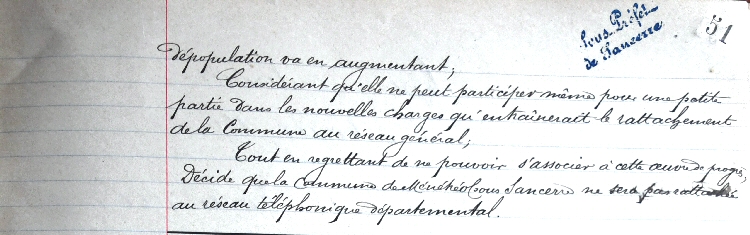 Sous-Préfet
de Sancerre
51
dépopulation va en augmentant;
Considérant qu'elle ne peut participer même pour une petite
partie dans les nouvelles charges qu'entraînerait le rattachement
de la Commune au réseau général;
Tout en regrettant de ne pouvoir s'associer à cette œuvre de progrès,
Décide que la Commune de Ménétréol sous Sancerre ne sera pas rattachée
au réseau téléphonique départemental.